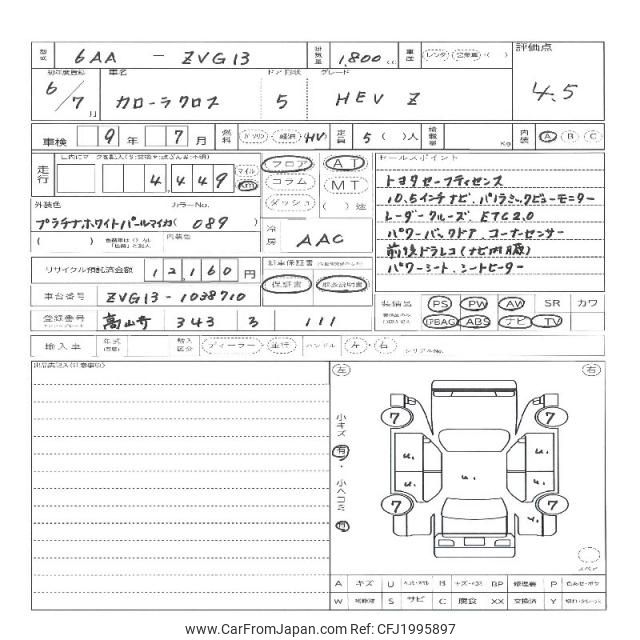 6AA - ZVG13 1,800 cc 評価点
初年度登録 車名 ドア形状 グレード
6/7月 カローラクロス 5 HEV Z 4.5
車検 9年 7月 燃料 HV 定員 5( )人 Kg 内装 A B C
走行 4,449 マイル Km フロア コラム ダッシュ AT MT ( )速
セールスポイント
トヨタセーフティセンス
10.5インチナビ、パノラミックビューモニター
レーダークルーズ、ETC2.0
パワーバックドア、コーナーセンサー
前後ドラレコ(ナビ内蔵)
パワーシート、シートヒーター
外装色 カラーNo.
プラチナホワイトパールマイカ( 089 )
内装色
冷房 AAC
リサイクル預託済金額 12,160円
保証書 取扱説明書
車台番号 ZVG13-1038710
登録番号 343 111
装備品 PS PW AW SR カワ
ABAG ABS ナビ TV
輸入車 年式 輸入区分 ディーラー 並行 ハンドル 左・右 シリアルNo.
左 右
小キズ 有・小ヘコミ 有
7 7
7 7
スペア
A キズ U B BP 修理跡 P
W S サビ C 腐食 XX 交換済 Y
www.CarFromJapan.com Ref: CFJ1995897